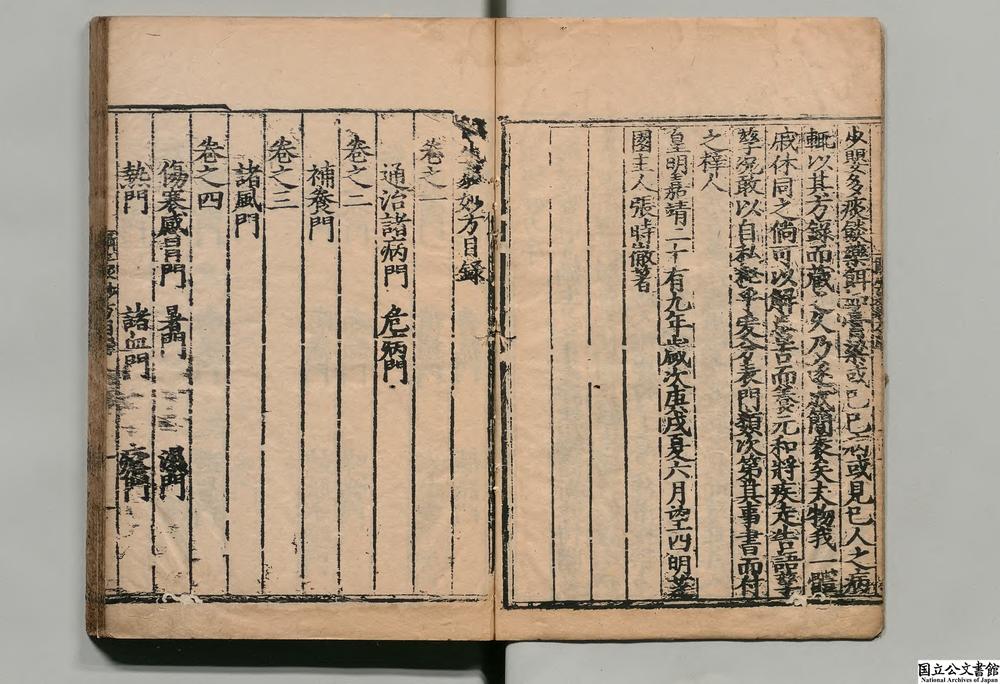 少嬰多疾餌藥餌
已已病或見已人之病
輒以其方錄而藏久乃
簡袠矣夫物我一體
戚休同之倘可以解
苦而養元和將疾走告語
孳宛敢以自私
爰分表門類次第其事書而付
之梓人
皇明嘉靖二十有九年歲次庚戌夏六月望四明
園主人張時徹著
妙方目錄
卷之一
通治諸病門 危病門
卷之二
補養門
卷之三
諸風門
卷之四
傷寒感冒門 暑門 濕門
熱門 諸血門 瘧門
国立公文書館
National Archives of Japan